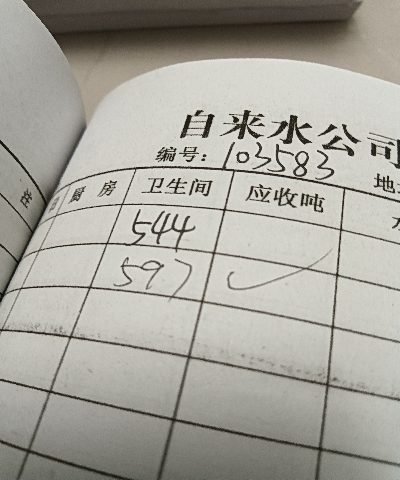 自来水公司
编号：103583
厨房 卫生间 应收吨
544
597